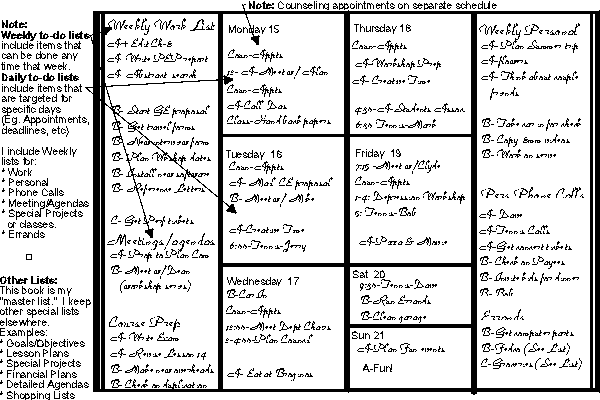 Note: Counseling appointments on separate schedule
Note:
Weekly to-do lists
include items that
can be done any
time that week.
Daily to-do lists
include items that
are targeted for
specific days
(Eg. Appointments,
deadlines, etc)
I include Weekly
lists for:
* Work
* Personal
* Phone Calls
* Meeting/Agendas
* Special Projects
or classes.
* Errands
Other Lists:
This book is my
"master list." I keep
other special lists
elsewhere.
Examples:
* Goals/Objectives
* Lesson Plans
* Special Projects
* Financial Plans
* Detailed Agendas
* Shopping Lists
Weekly Work List
A- Edit Ch-8
A- Write Report
A- Abstract
B- Start GE proposal
B- Get travel forms
B- New
B- Plan Workshop dates
B- Install new software
B- Reference Letters
C- Get Perf tickets
Meetings/agendas
A- Prep to Plan Com
B- Meet w/ Dean
(workshop series)
Course Prep
A- Write Exam
A- Revise Lesson 14
B- Make new overheads
B- Check on duplication
Monday 15
Coun-Appts
Coun-Appts
A-Call Dan
Class-Handback papers
Tuesday 16
Coun-Appts
A-Mail GE proposal
B- Meet w/ Mike
A-Creative Time
6:00-Tennis-Jerry
Wednesday 17
B-Car In
Coun-Appts
12:00-Meet Dept Chairs
2-4:00-Plan Council
A- Eat at
Thursday 18
Coun-Appts
A-Workshop Prep
A-Creative Time
4:30-A-Students
6:30 Tennis-Mark
Friday 19
7:15-Meet w/Clyde
Coun-Appts
1-4: Depression Workshop
5: Tennis-Bob
A-Pizza & Movie
Sat 20
9:30-Tennis-Dave
B-Run Errands
B-Clean garage
Sun 21
A-Plan Fun events
A-Fun!
Weekly Personal
A-Plan Summer trip
A-finances
A-Think about
friends
B-Take car in for check
B-Copy
B-Work on
Pers Phone Calls
A-Dave
A-Tennis Calls
A-Get concert tickets
B-Check on Payers
B-Invite for dinner
B-Bob
Errands
B-Get computer parts
B-Fedco (See List)
B-Groceries (See List)